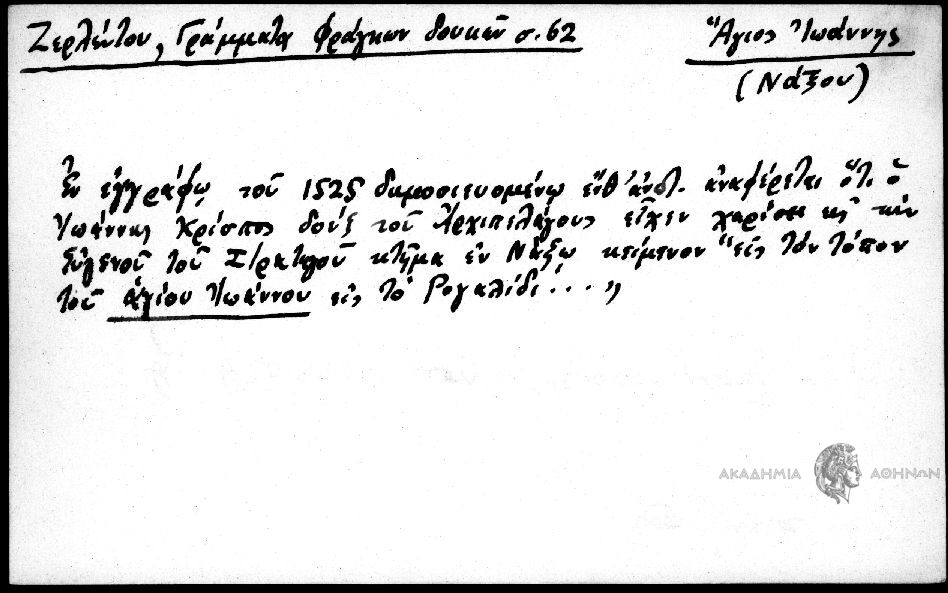 Ζερλέντου, Γράμματα Φράγκων δουκῶν σ. 62
Ἅγιος Ἰωάννης
(Νάξου)
Ἐν ἐγγράφῳ τοῦ 1525 δημοσιευομένῳ ἔνθ' ἀνωτ. ἀναφέρεται ὅτι ὁ
Ἰωάννης Κρίσπος δοὺξ τοῦ Ἀρχιπελάγους εἶχεν χαρίσει
Εὐγενοῦ τοῦ κτῆμα ἐν Νάξῳ κείμενον "εἰς τὸν τόπον
τοῦ ἁγίου Ἰωάννου εἰς τὸ Ρογαλίδι ... "
ΑΚΑΔΗΜΙΑ ΑΘΗΝΩΝ